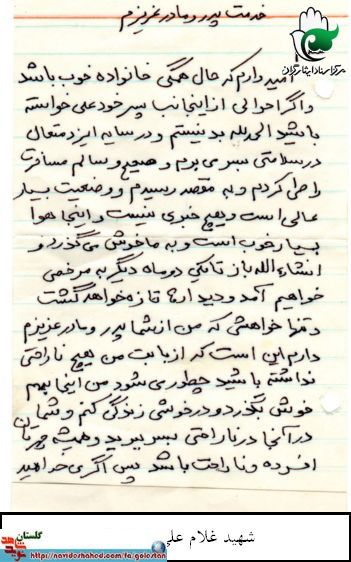 خدمت پدر و مادر عزیزم
مرکز اسناد ایثارگران
امیدوارم که حال همگی خانواده خوب باشد
و اگر احوالی از اینجانب پسر خود علی خواسته
باشید الحمدلله بد نیستم و در سایه ایزد متعال
در سلامتی بسر می برم و صحیح و سالم مسافرت
را طی کردم و به مقصد رسیدم و وضعیت بسیار
عالی است و هیچ خبری نیست و اینجا هوا
بسیار خوب است و به ما خوش می گذرد و
انشاءالله باز تا یکی دو ماه دیگر به مرخصی
خواهیم آمد و دیدارها تازه خواهد گشت
و تنها خواهشی که من از شما پدر و مادر عزیزم
دارم این است که از بابت من هیچ ناراحتی
نداشته باشید چطوری میشود من اینجا بهم
خوش بگذرد و در خوشی زندگی کنم و شمایان
در آنجا در ناراحتی بسر ببرید و همیشه مهربان
افسرده و ناراحت باشد پس اگر می خواهید
شهید غلام علی
گلستان
نوید شاهد
http://navideshahed.com/fa/golestan